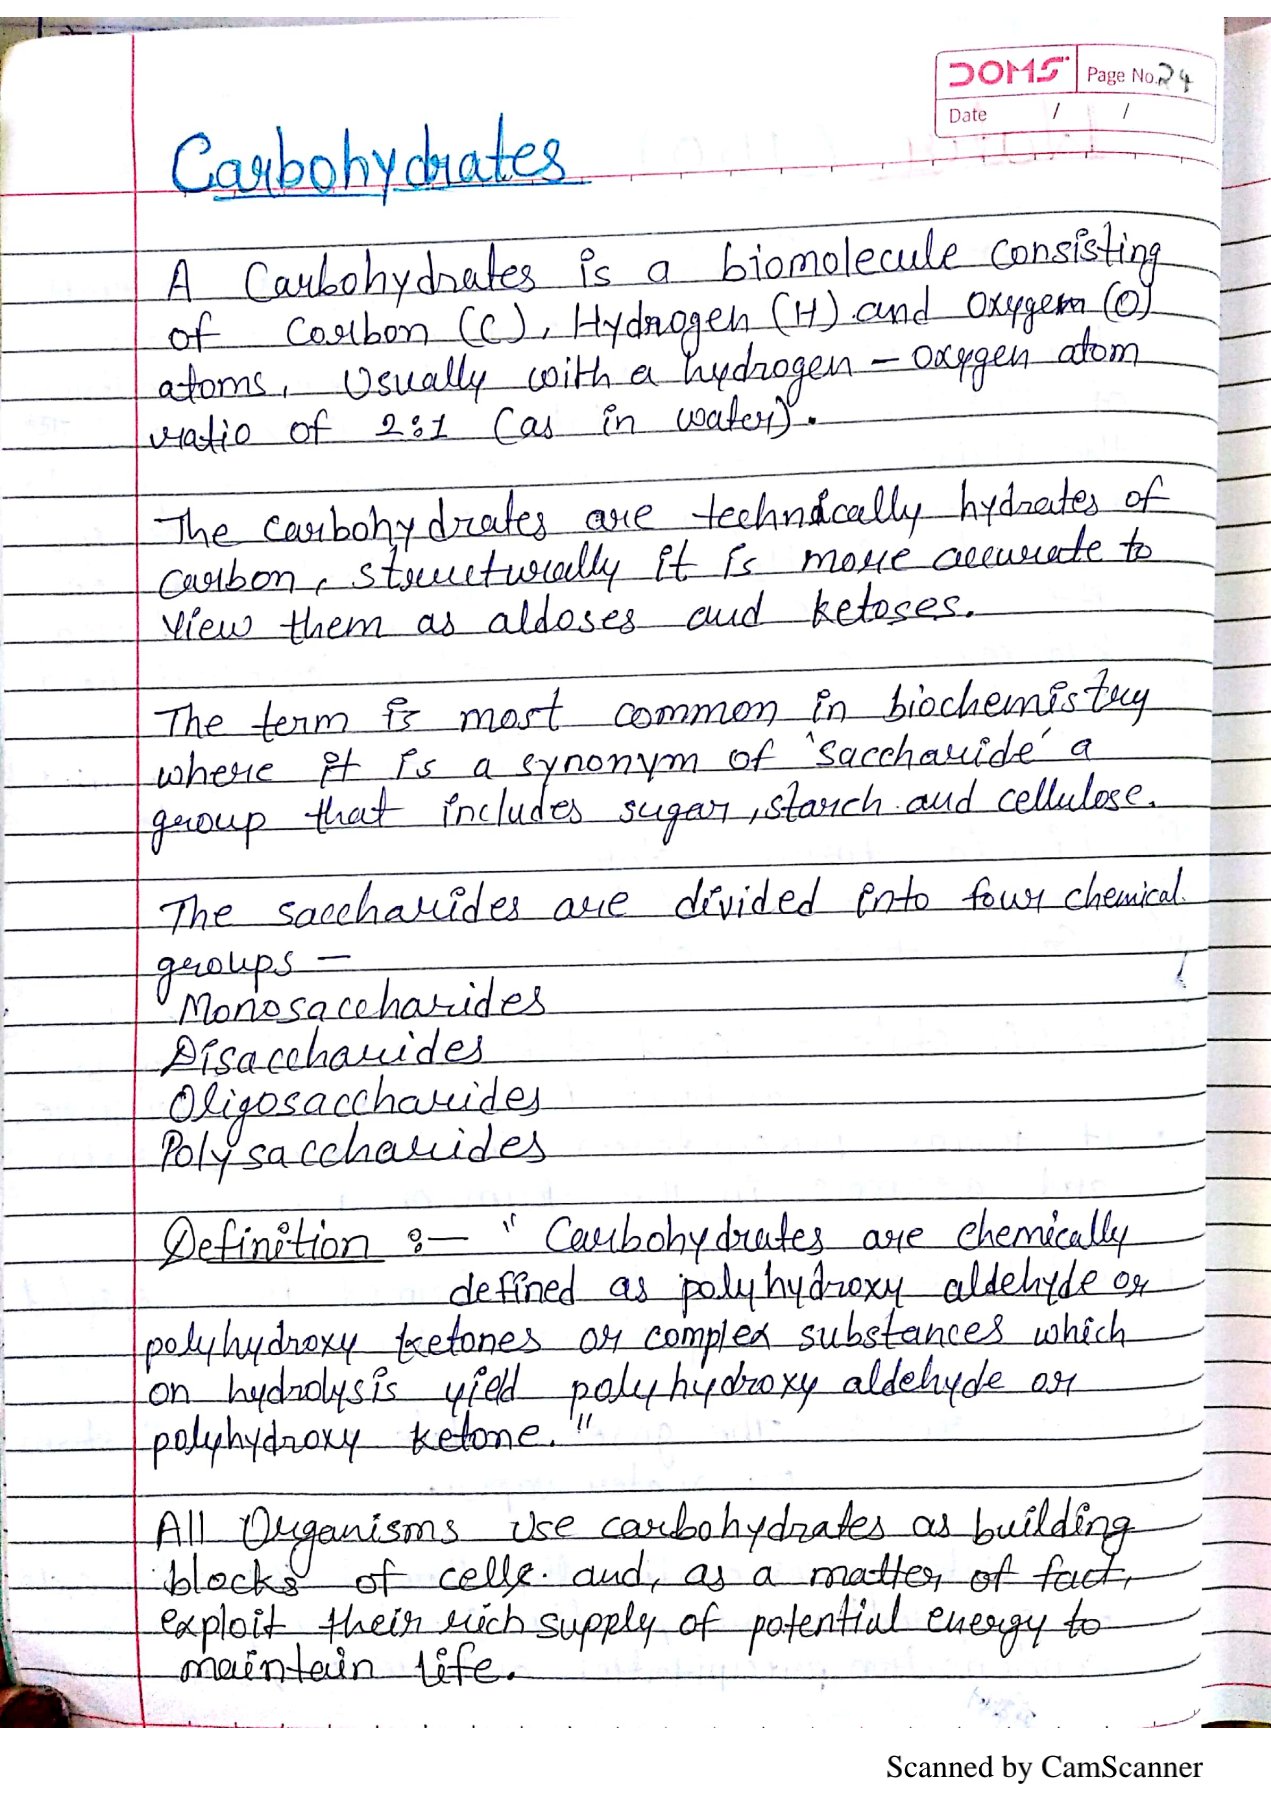 DOMS
Page No. 24
Date / /
Carbohydrates
A Carbohydrates is a biomolecule consisting
of Carbon (C), Hydrogen (H) and Oxygen (O)
atoms, Usually with a hydrogen - oxygen atom
ratio of 2:1 (as in water).
The carbohydrates are technically hydrates of
carbon, structurally it is more accurate to
view them as aldoses and ketoses.
The term is most common in biochemistry
where it is a synonym of 'saccharide' a
group that includes sugar, starch and cellulose.
The saccharides are divided into four chemical
groups -
Monosaccharides
Disaccharides
Oligosaccharides
Polysaccharides
Definition :- " Carbohydrates are chemically
defined as polyhydroxy aldehyde or
polyhydroxy ketones or complex substances which
on hydrolysis yield polyhydroxy aldehyde or
polyhydroxy ketone."
All Organisms Use carbohydrates as building
blocks of cells. and, as a matter of fact,
exploit their rich supply of potential energy to
maintain life.
Scanned by CamScanner